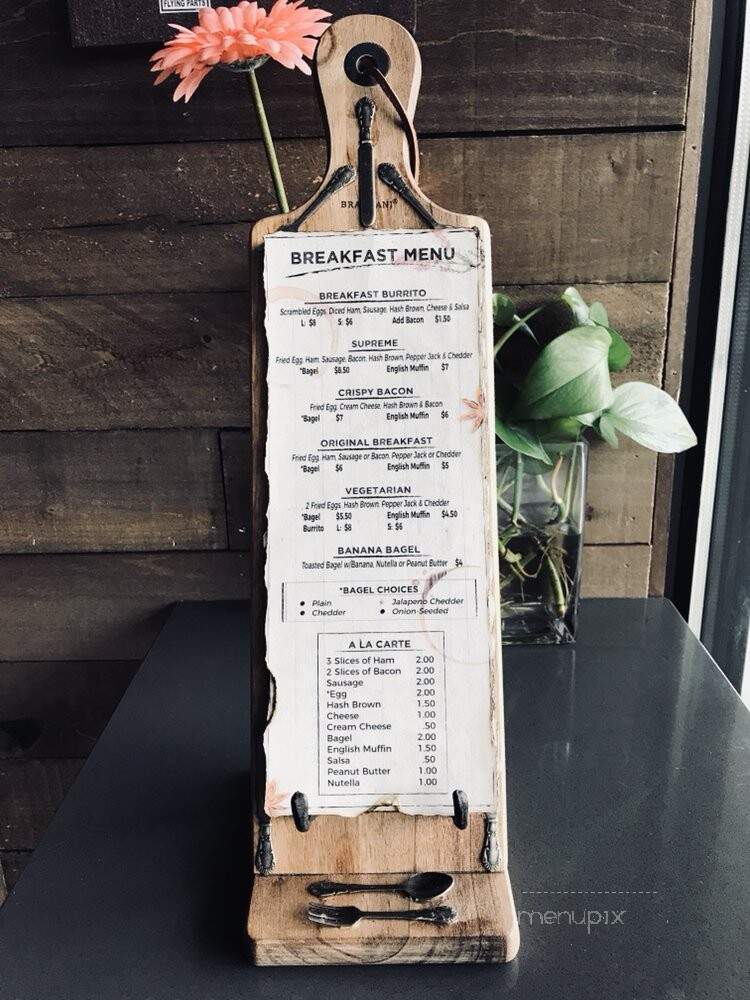 FLYING PARTS
BREAKFAST MENU
BREAKFAST BURRITO
Scrambled Eggs, Diced Ham, Sausage, Hash Brown, Cheese & Salsa
L: $8 S: $6 Add Bacon $1.50
SUPREME
Fried Egg, Ham, Sausage, Bacon, Hash Brown, Pepper Jack & Chedder
*Bagel $8.50 English Muffin $7
CRISPY BACON
Fried Egg, Cream Cheese, Hash Brown & Bacon
*Bagel $7 English Muffin $6
ORIGINAL BREAKFAST
Fried Egg, Ham, Sausage or Bacon, Pepper Jack or Chedder
*Bagel $6 English Muffin $5
VEGETARIAN
2 Fried Eggs, Hash Brown, Pepper Jack & Chedder
*Bagel $5.50 English Muffin $4.50
Burrito L: $8 S: $6
BANANA BAGEL
Toasted Bagel w/Banana, Nutella or Peanut Butter $4
*BAGEL CHOICES
• Plain • Jalapeno Chedder
• Chedder • Onion-Seeded
A LA CARTE
3 Slices of Ham 2.00
2 Slices of Bacon 2.00
Sausage 2.00
*Egg 2.00
Hash Brown 1.50
Cheese 1.00
Cream Cheese .50
Bagel 2.00
English Muffin 1.50
Salsa .50
Peanut Butter 1.00
Nutella 1.00
menupix